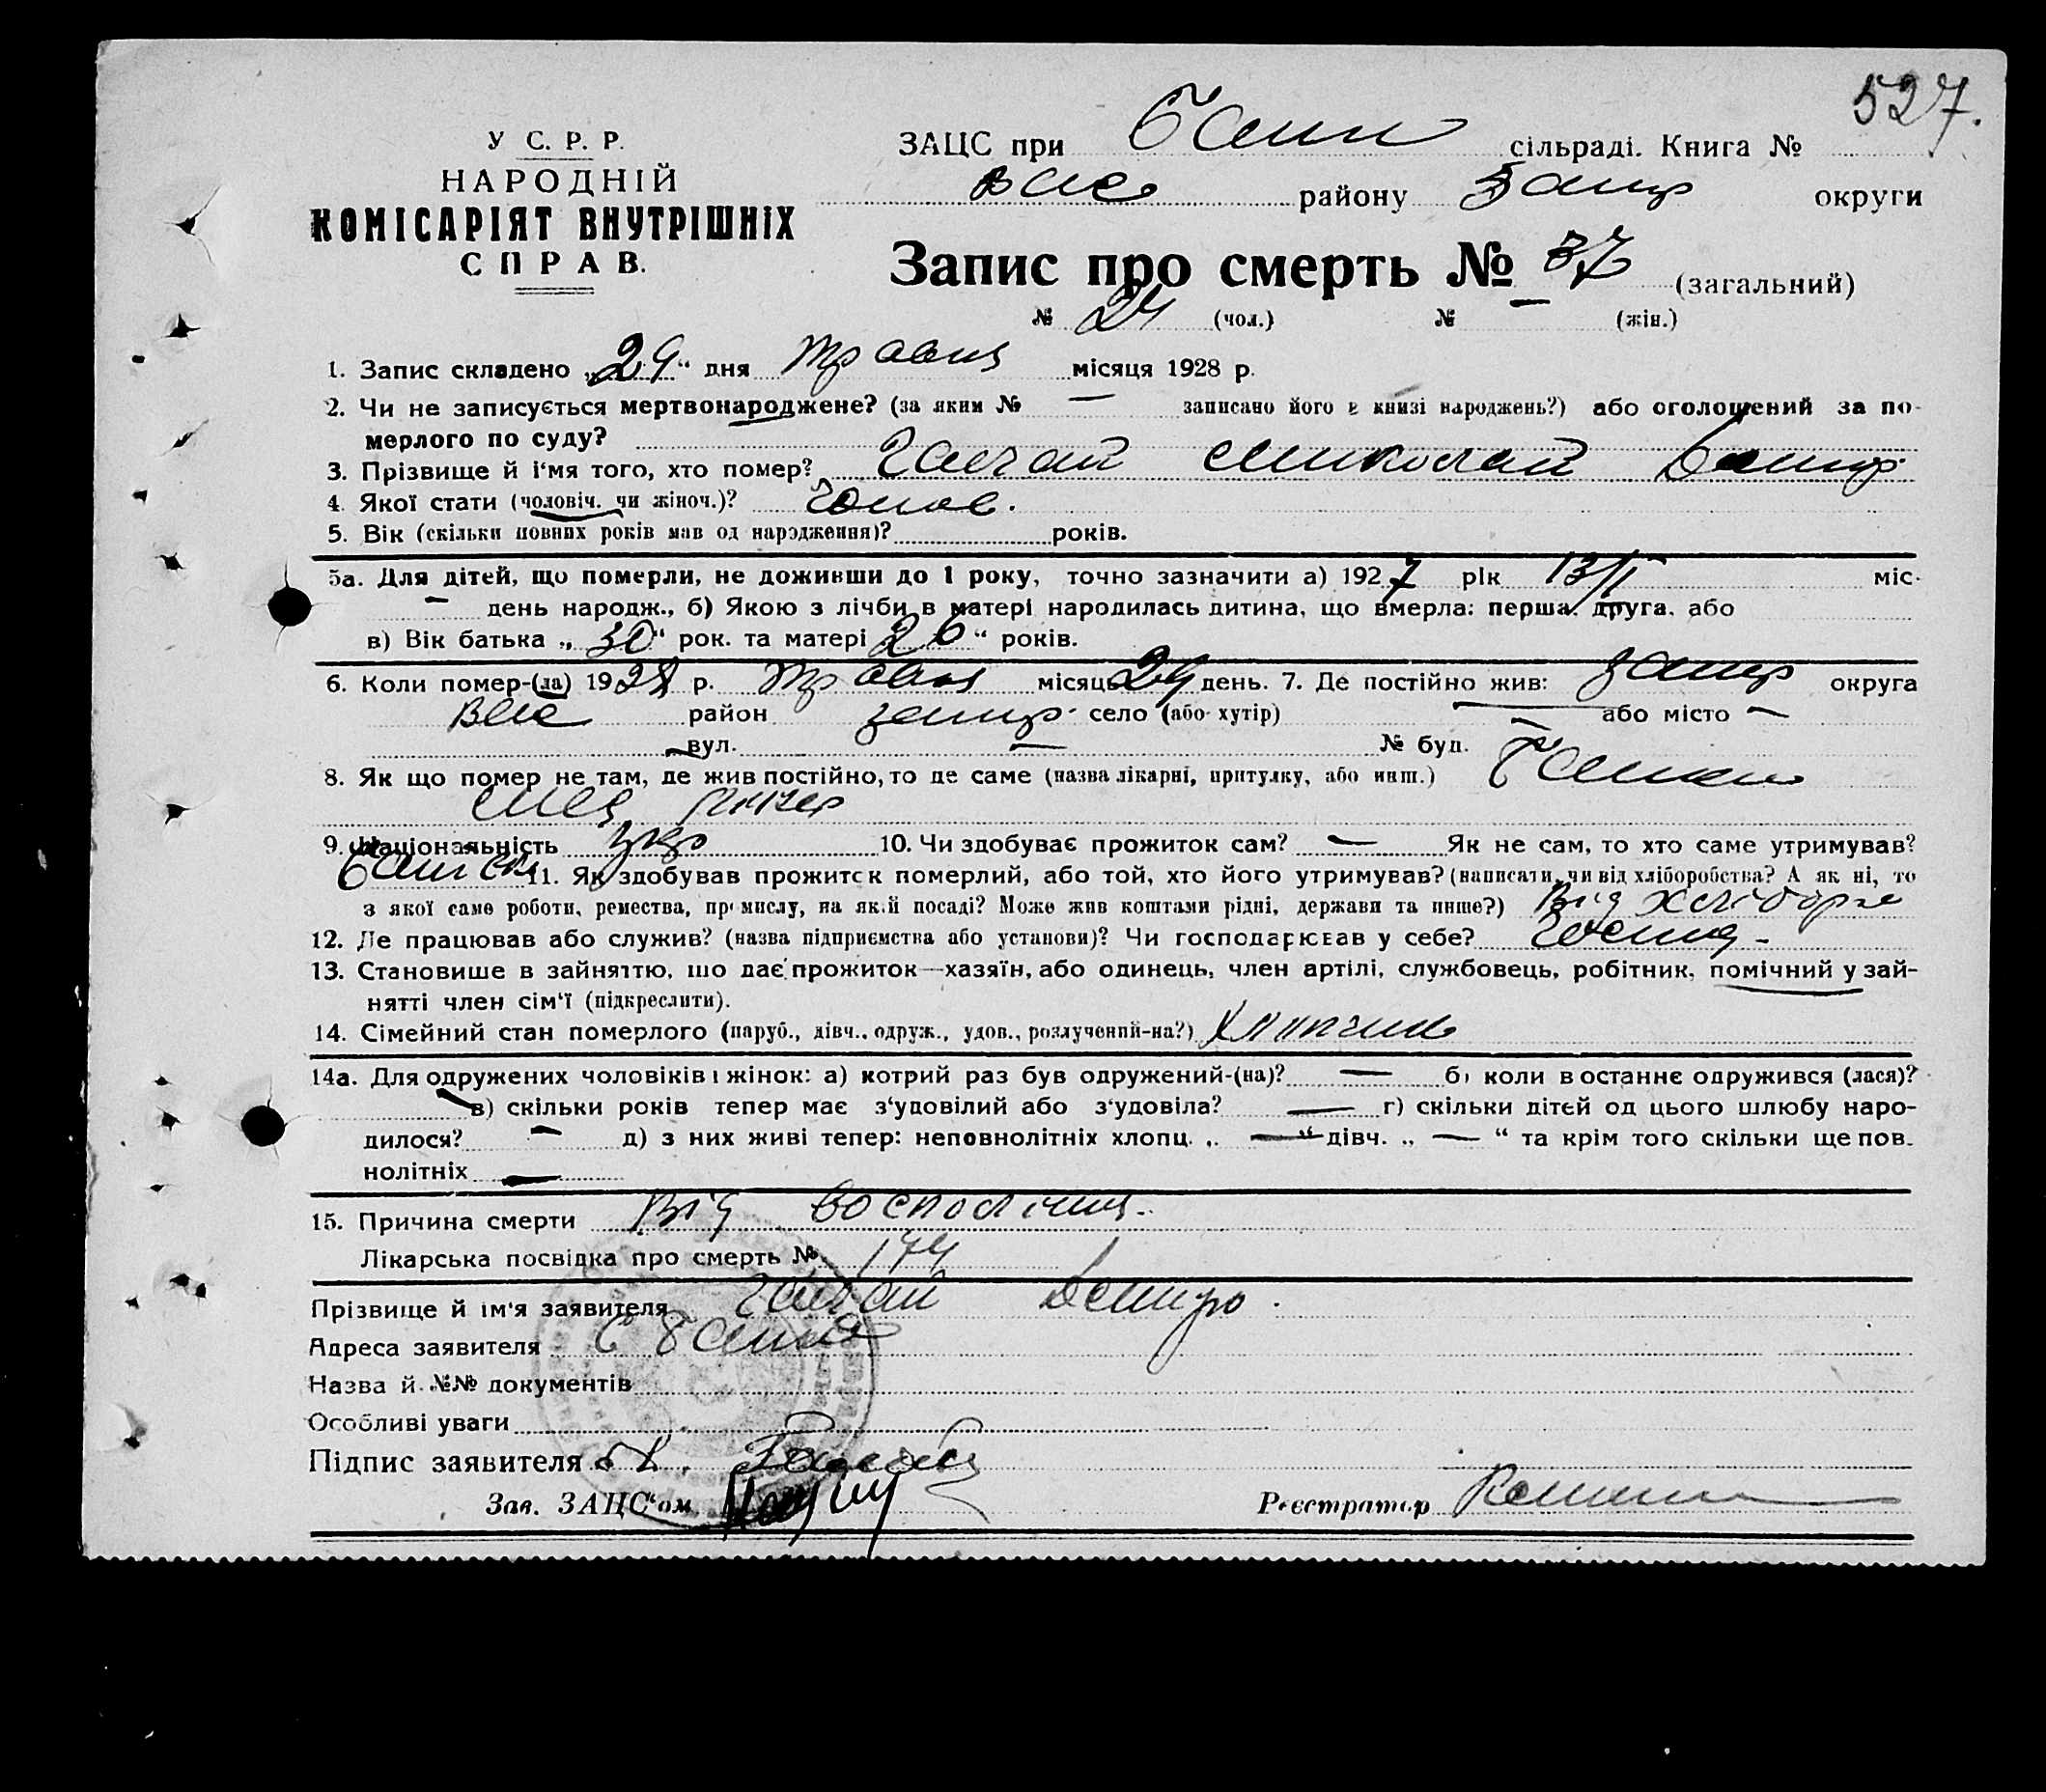 527.
У С. Р. Р.
НАРОДНІЙ
КОМІСАРІЯТ ВНУТРІШНІХ
СПРАВ.
ЗАЦС при сільраді. Книга №
Вас району Запор округи
Запис про смерть № 37 (загальний)
№ 24 (чол.) № — (жін.)
1. Запис складено „29“ дня травня місяця 1928 р.
2. Чи не записується мертвонароджене? (за яким № — записано його в книзі народжень?) або оголошений за по-
мерлого по суду?
3. Прізвище й і'мя того, хто помер? Николай
4. Якої стати (чоловіч. чи жіноч.)? чолов.
5. Вік (скільки повних років мав од народження)? років.
5а. Для дітей, що померли, не доживши до 1 року, точно зазначити а) 1927 рік міс.
— день народж., б) Якою з лічби в матері народилась дитина, що вмерла: перша, друга, або
в) Вік батька „30“ рок. та матері „26“ років.
6. Коли помер-(ла) 1928 р. травня місяць 29 день. 7. Де постійно жив: Запор округа
Вас район село (або хутір) або місто —
вул. — № буд. —
8. Як що помер не там, де жив постійно, то де саме (назва лікарні, притулку, або инш.)
9. Національність укр 10. Чи здобуває прожиток сам? — Як не сам, то хто саме утримував?
батьки 11. Як здобував прожиток померлий, або той, хто його утримував? (написати, чи від хліборобства? А як ні, то
з якої саме роботи, ремества, промислу, на якій посаді? Може жив коштами рідні, держави та инше?) Від хлібороб
12. Де працював або служив? (назва підприємства або установи)? Чи господарював у себе?
13. Становише в зайняттю, що дає прожиток—хазяїн, або одинець, член артілі, службовець, робітник, помічний у зай-
нятті член сім'ї (підкреслити).
14. Сімейний стан померлого (паруб., дівч., одруж., удов., розлучений-на?) хлопчик
14а. Для одружених чоловіків і жінок: а) котрий раз був одружений-(на)? — б) коли в останнє одружився (лася)?
— в) скільки років тепер має з'удовілий або з'удовіла? — г) скільки дітей од цього шлюбу наро-
дилося? — д) з них живі тепер: неповнолітніх хлопц. „—“ дівч. „—“ та крім того скільки ще пов-
нолітніх —
15. Причина смерти Від
Лікарська посвідка про смерть № 174
Прізвище й ім'я заявителя Дмитро
Адреса заявителя С
Назва й №№ документів
Особливі уваги
Підпис заявителя
Зав. ЗАЦС'ом Реєстратор